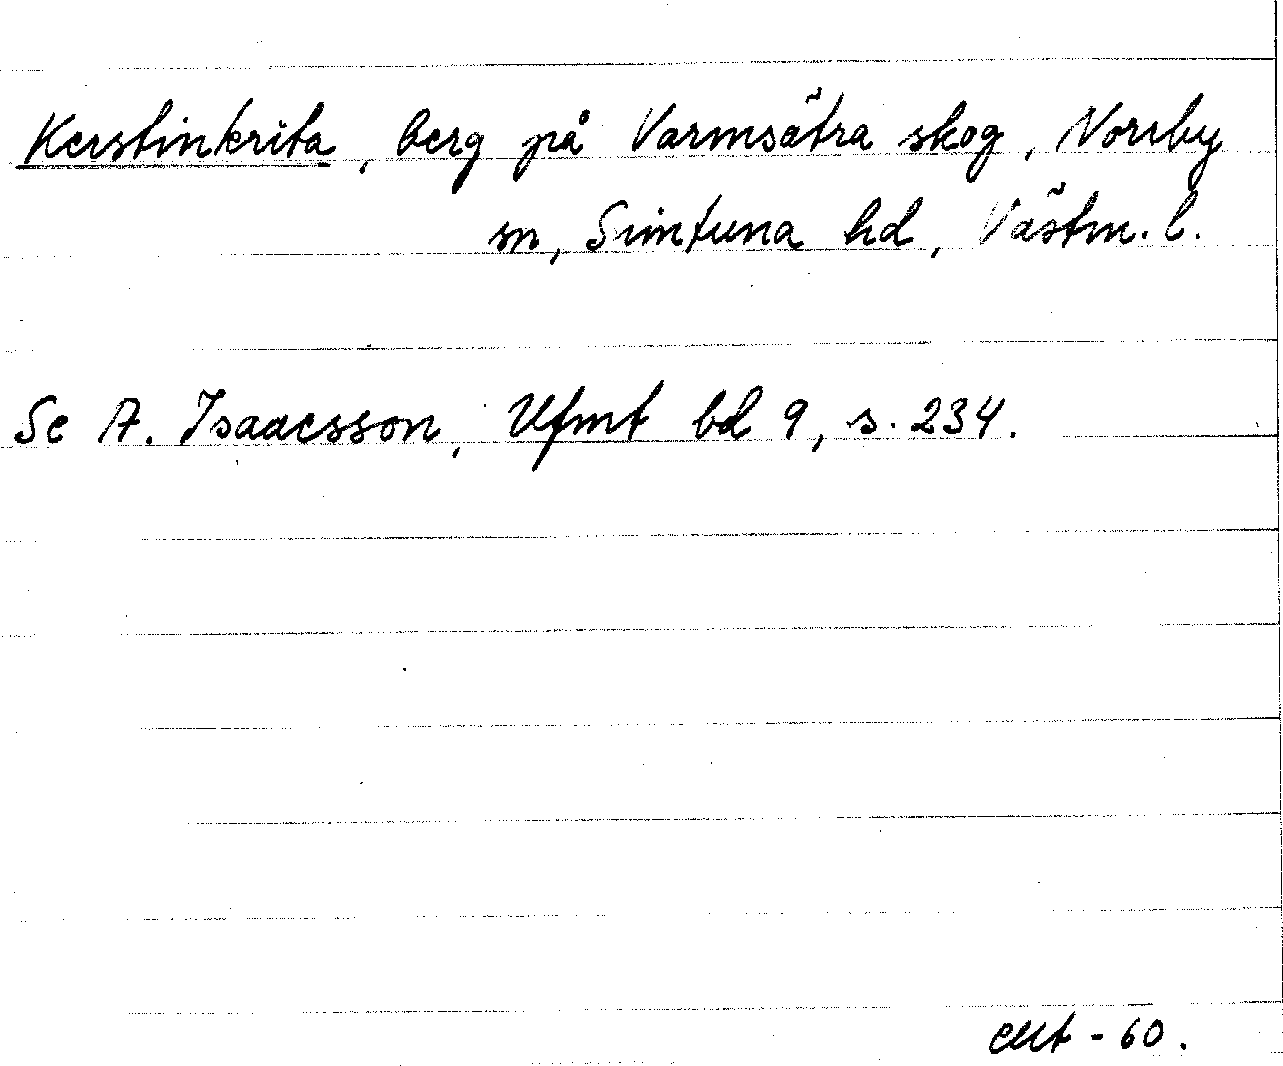 Kerstinkrita, berg på Varmsätra skog, Norrby
sn, Simtuna hd, Västm. l.
Se A. Isaacsson, Ufmt bd 9, s. 234.
- 60.